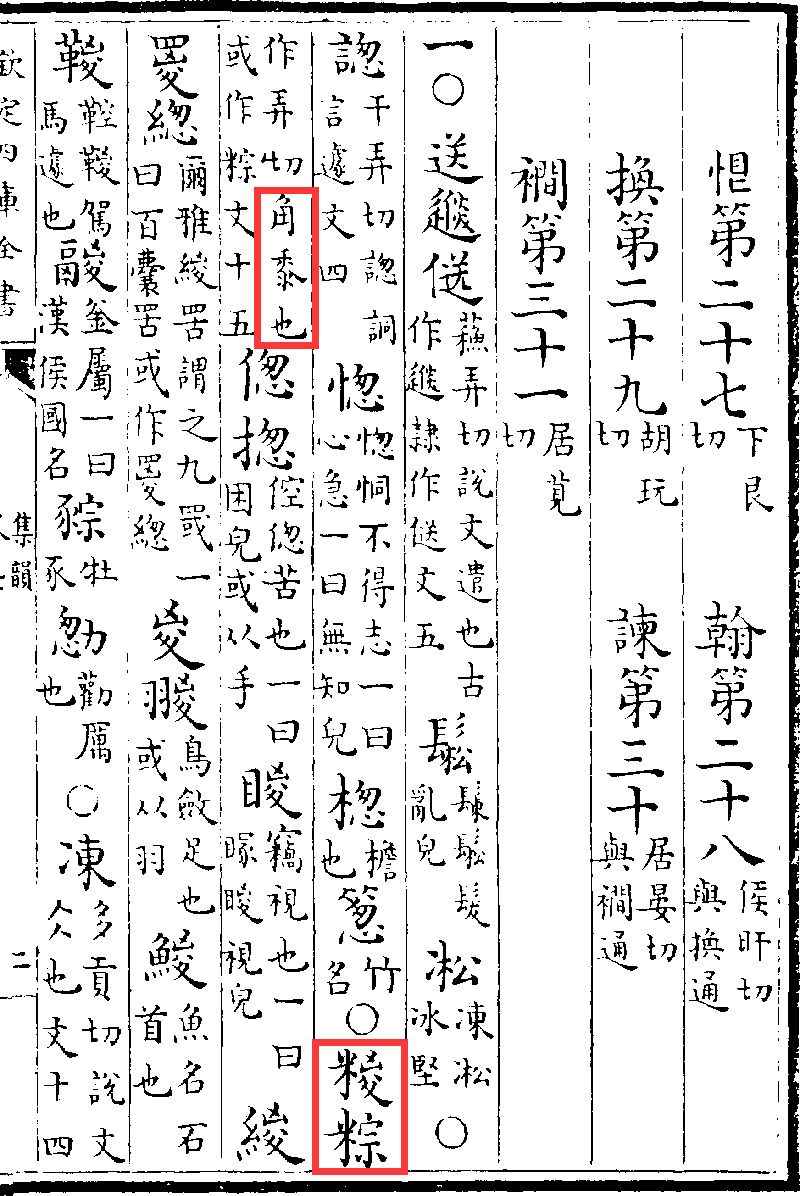 恨第二十七下艮切 翰第二十八侯旰切與換通
換第二十九胡玩切 諫第三十居晏切與襉通
襉第三十一居莧切
一○送䢠㑞蘇弄切說文遣也古作䢠隸作㑞文五 鬆䰃鬆髮亂皃 凇凍凇冰堅○
謥千弄切謥詷言遽文四 愡愡恫不得志一曰心急一曰無知皃 㯶檐也 䈡竹名○糉粽
作弄切角黍也或作粽文十五 偬揔倥偬苦也一曰困皃或从手 䁓竊視也一曰䁓視皃 緵
罭緫爾雅緵罟謂之九罭一曰百囊罟或作罭緫 㚇翪鳥斂足也或从羽 鯼魚名石首也
鞍鞍駕馬遽也 鬷釜屬一曰漢侯國名 猔牡豕 勸厲也○凍多貢切說文仌也文十四
欽定四庫全書
集韻
二